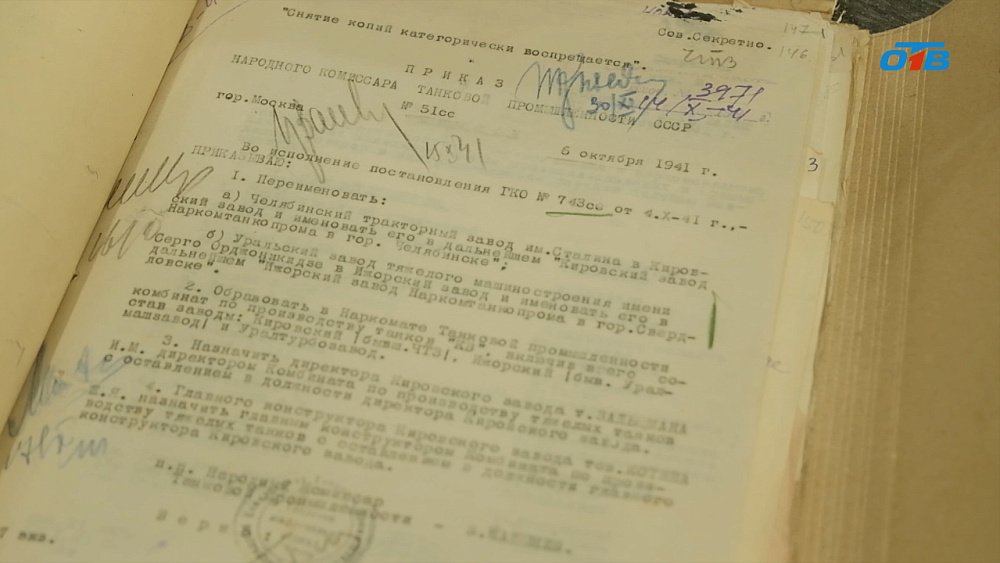 ОТВ
Сов.Секретно.
"Снятие копий категорически воспрещается".
147
146
ЧТЗ
ПРИКАЗ
НАРОДНОГО КОМИССАРА ТАНКОВОЙ ПРОМЫШЛЕННОСТИ СССР
3971
№ 51сс
гор.Москва
6 октября 1941 г.
3
Во исполнение постановления ГКО № 743сс от 4.X-41 г.,-
ПРИКАЗЫВАЮ:
1. Переименовать:
а) Челябинский тракторный завод им.Сталина в Киров-
ский завод и именовать его в дальнейшем "Кировский завод
Наркомтанкопрома в гор. Челябинске";
б) Уральский завод тяжелого машиностроения имени
Серго Орджоникидзе в Ижорский завод и именовать его в
дальнейшем "Ижорский завод Наркомтанкопрома в гор.Сверд-
ловске".
2. Образовать в Наркомате Танковой промышленности
комбинат по производству танков "КВ", включив в его со-
став заводы: Кировский /бывш.ЧТЗ/, Ижорский /быв. Урал-
машзавод/ и Уралтурбозавод.
3. Назначить директора Кировского завода т.ЗАЛЬЦМАНА
И.М. директором Комбината по производству тяжелых танков
с оставлением в должности директора Кировского завода.
4. Главного конструктора Кировского завода тов.КОТИНА
Ж.Я. назначить главным конструктором Комбината по произ-
водству тяжелых танков с оставлением в должности главного
конструктора Кировского завода.
п.п. Народный Комиссар
Танковой Промышленности -
Верно:
7 экз.